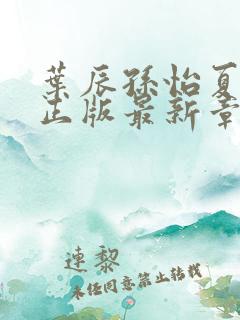 葉辰孫怡夏
正版最新章
連黎
未经同意禁止转载